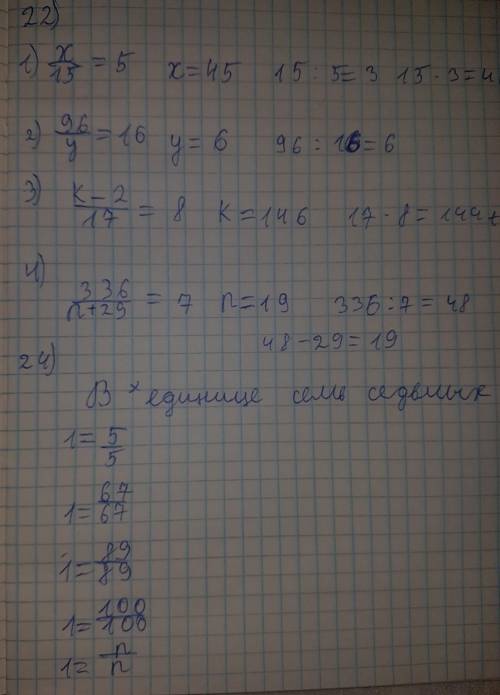 22)
1) x/15 = 5 x=45 15 : 5= 3 15 · 3=4
2) 96/y = 16 y= 6 96 : 16=6
3) k-2/17 = 8 k=146 17 · 8 = 144+
4) 336/n+29 = 7 n=19 336:7=48
48-29=19
24)
В единице семь седьмых
1= 5/5
1= 67/67
1= 89/89
1= 100/100
1= n/n